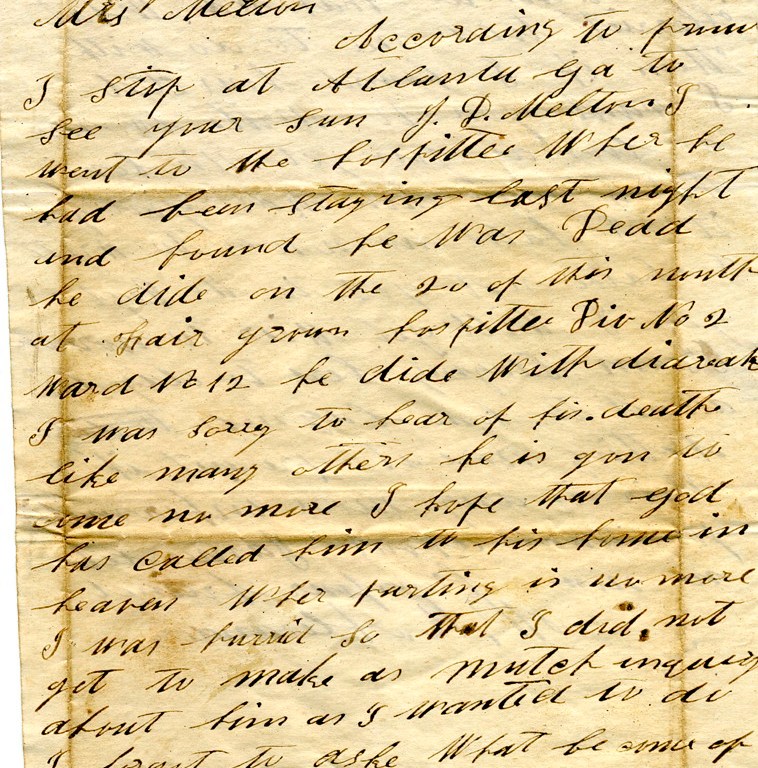 Mrs Melton
According to prom
I stop at Atlanta Ga to
see your sun J. D. Melton I
went to the hospittle Wher he
had been staying last night
and found he Was Dedd
he dide on the 20 of this month
at Fair groun hospittle Div No 2
Ward No 12 he dide With diareah
I was sorry to hear of his death
like many others he is gon to
come no more I hope that god
has called him to his home in
heaven Wher parting is no more
I was hurrid so that I did not
get to make as mutch inquiry
about him as I wanted to do
I forgot to aske What become of